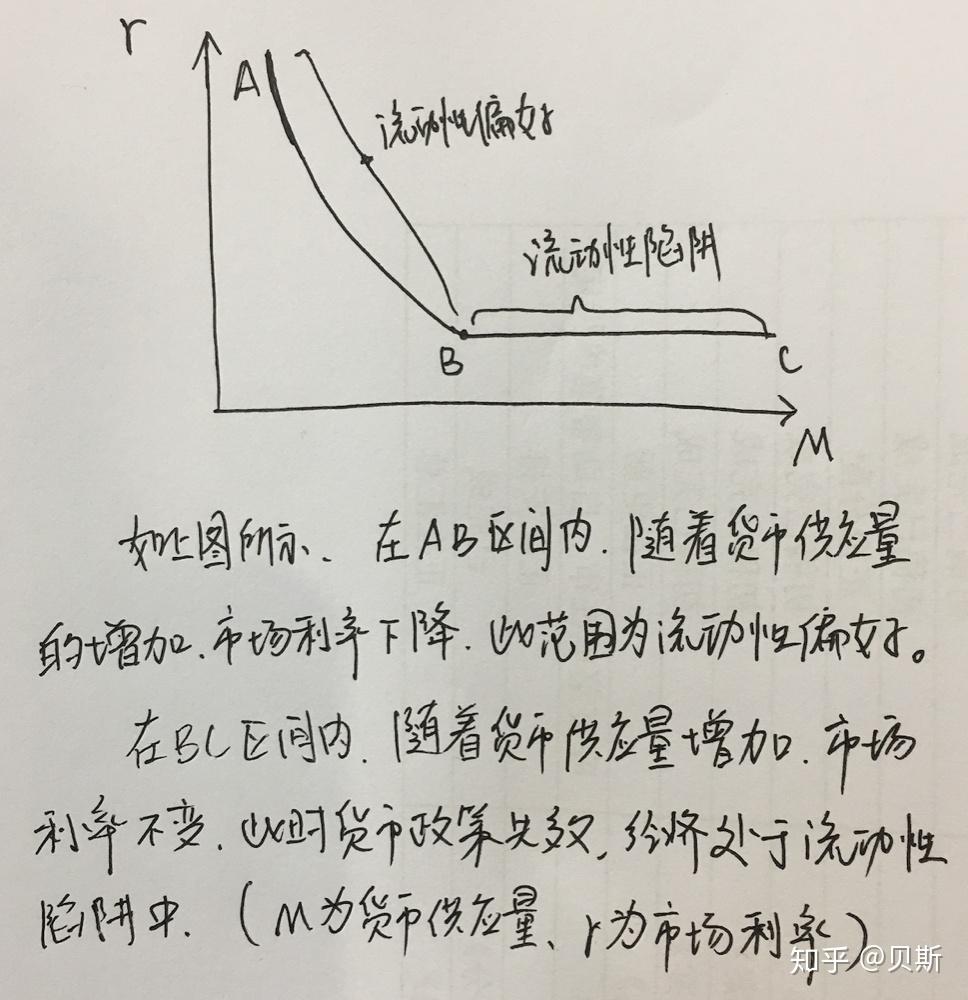 r
A
流动性偏好
流动性陷阱
B
C
M
如上图所示、在AB区间内.随着货币供应量
的增加.市场利率下降.此范围为流动性偏好。
在BC区间内.随着货币供应量增加.市场
利率不变.此时货币政策失效.经济处于流动性
陷阱中.(M为货币供应量、r为市场利率)
知乎 @贝斯